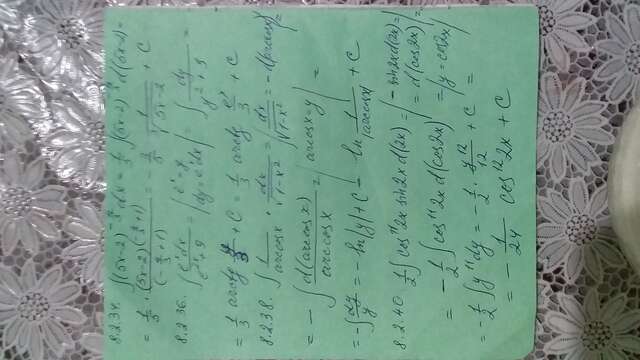 8.2.34. ∫(5x-2)^{-3/2} dx = 1/5 ∫(5x-2)^{-3/2} d(5x-2) =
= 1/5 · (5x-2)^{(-3/2+1)} / (-3/2+1) = -2/5 · 1/√(5x-2) + C
8.2.36. ∫ e^x dx / (e^{2x}+9) = | e^x = y | dy = e^x dx | = ∫ dy / (y²+9) =
= 1/3 arctg y/3 + C = 1/3 arctg e^x/3 + C
8.2.38. ∫ 1/arccos x · dx/√(1-x²) = | dx/√(1-x²) = -d(arccos x) | =
= -∫ d(arccos x) / arccos x = | arccos x = y | =
= -∫ dy/y = -ln|y| + C = ln 1/|arccos x| + C
8.2.40 1/2 ∫ cos¹¹2x sin2x d(2x) = | -sin2x d(2x) = | = d(cos2x) |
= -1/2 ∫ cos¹¹2x d(cos2x) = | y = cos2x |
= -1/2 ∫ y¹¹ dy = -1/2 · y¹²/12 + C =
= -1/24 cos¹²2x + C